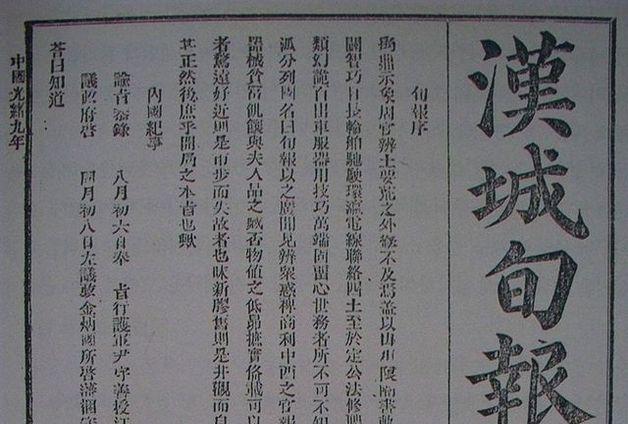 漢城旬報
旬報序
禹鼎示象周官辨土要荒之外概不及焉盖以山川限隔書軌
闢智巧日長輪舶馳駛環瀛電線聯絡四土至於定公法修聘
類幻詭百出車服器用技巧萬端固留心世務者所不可不知
派分列國名曰旬報以之廣聞見辨衆惑裨商利中西之官報
器械貧富飢饟與夫人品之臧否物値之低昻摭實俻載可以
者騖遠好近則是市步而失故者也昧新膠舊則是井觀而自
其正然後庶乎開局之本旨也歟
內國紀事
諭旨恭錄 八月初六日奉 旨行護軍尹守善授江
議政府啓 四月初八日左議政金炳國所啓藩閫
答曰知道
中國光緒九年